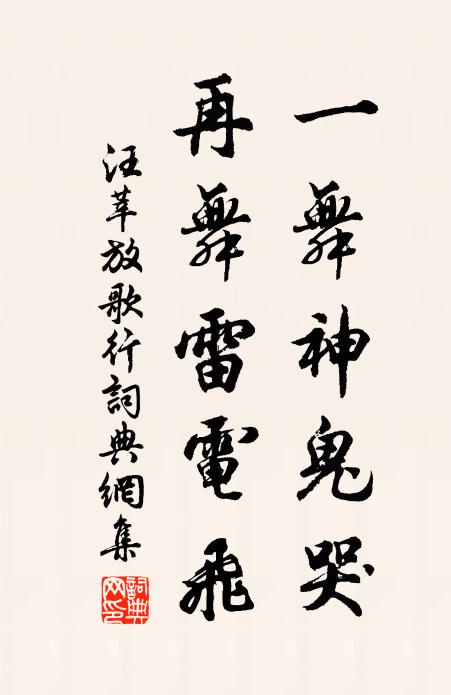 一舞神鬼哭
再舞雷電飛
汪莘放歌行詞典網集
詞典
網印